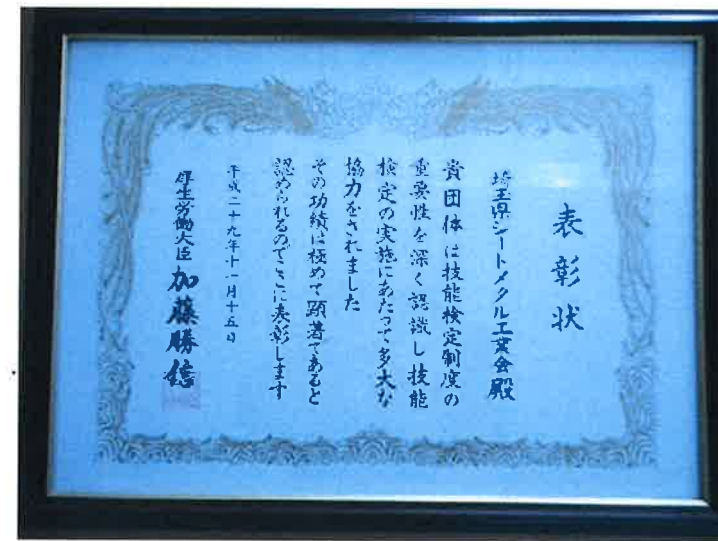 表彰状
埼玉県シートメタル工業会殿
貴団体は技能検定制度の
重要性を深く認識し技能
検定の実施にあたって多大な
協力をされました
その功績は極めて顕著であると
認められるのでここに表彰します
平成二十九年十一月十五日
厚生労働大臣 加藤勝信